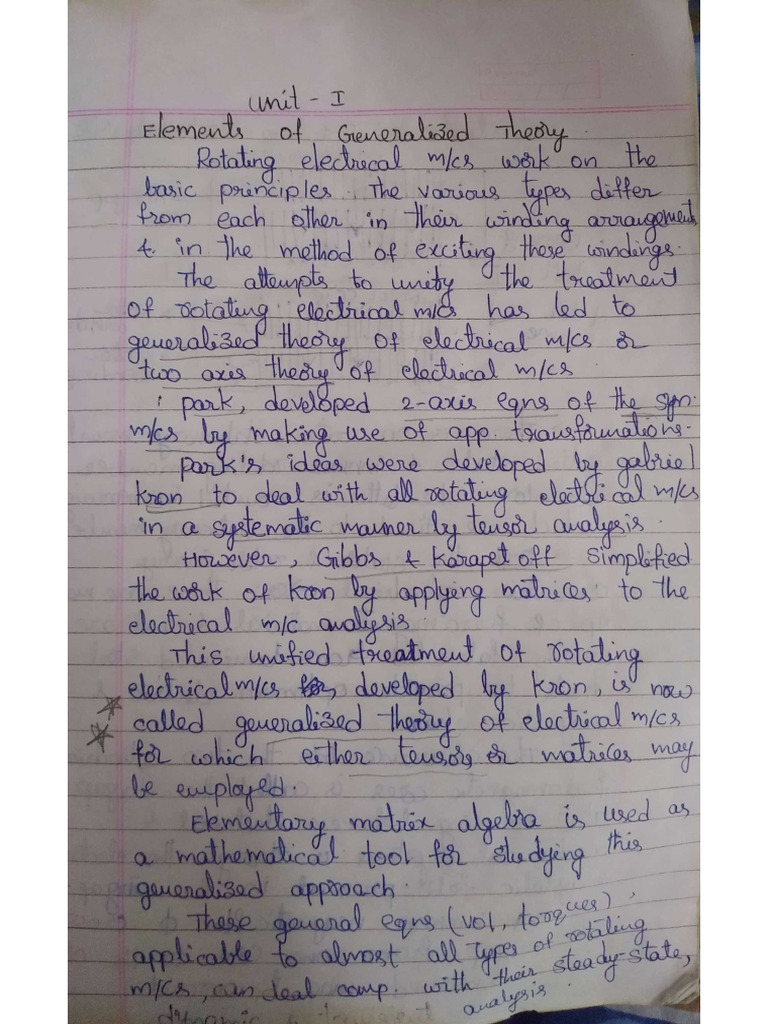 Unit - I
Elements of Generalized Theory.
Rotating electrical m/cs work on the
basic principles. The various types differ
from each other in their winding arrangement
& in the method of exciting these windings.
The attempts to unity the treatment
of rotating electrical m/cs has led to
generalized theory of electrical m/cs or
two axis theory of electrical m/cs
: park, developed 2-axis eqns of the syn.
m/cs by making use of app. transformations.
Park's ideas were developed by gabriel
kron to deal with all rotating electrical m/cs
in a systematic manner by tensor analysis.
However, Gibbs & Karapet off simplified
the work of kron by applying matrices to the
electrical m/c analysis.
This unified treatment of rotating
electrical m/cs developed by kron, is now
called generalized theory of electrical m/cs
for which either tensors or matrices may
be employed.
Elementary matrix algebra is used as
a mathematical tool for studying this
generalized approach.
These general eqns (vol, torques),
applicable to almost all types of rotating
m/cs, can deal comp. with their steady-state,
dynamic & analysis.